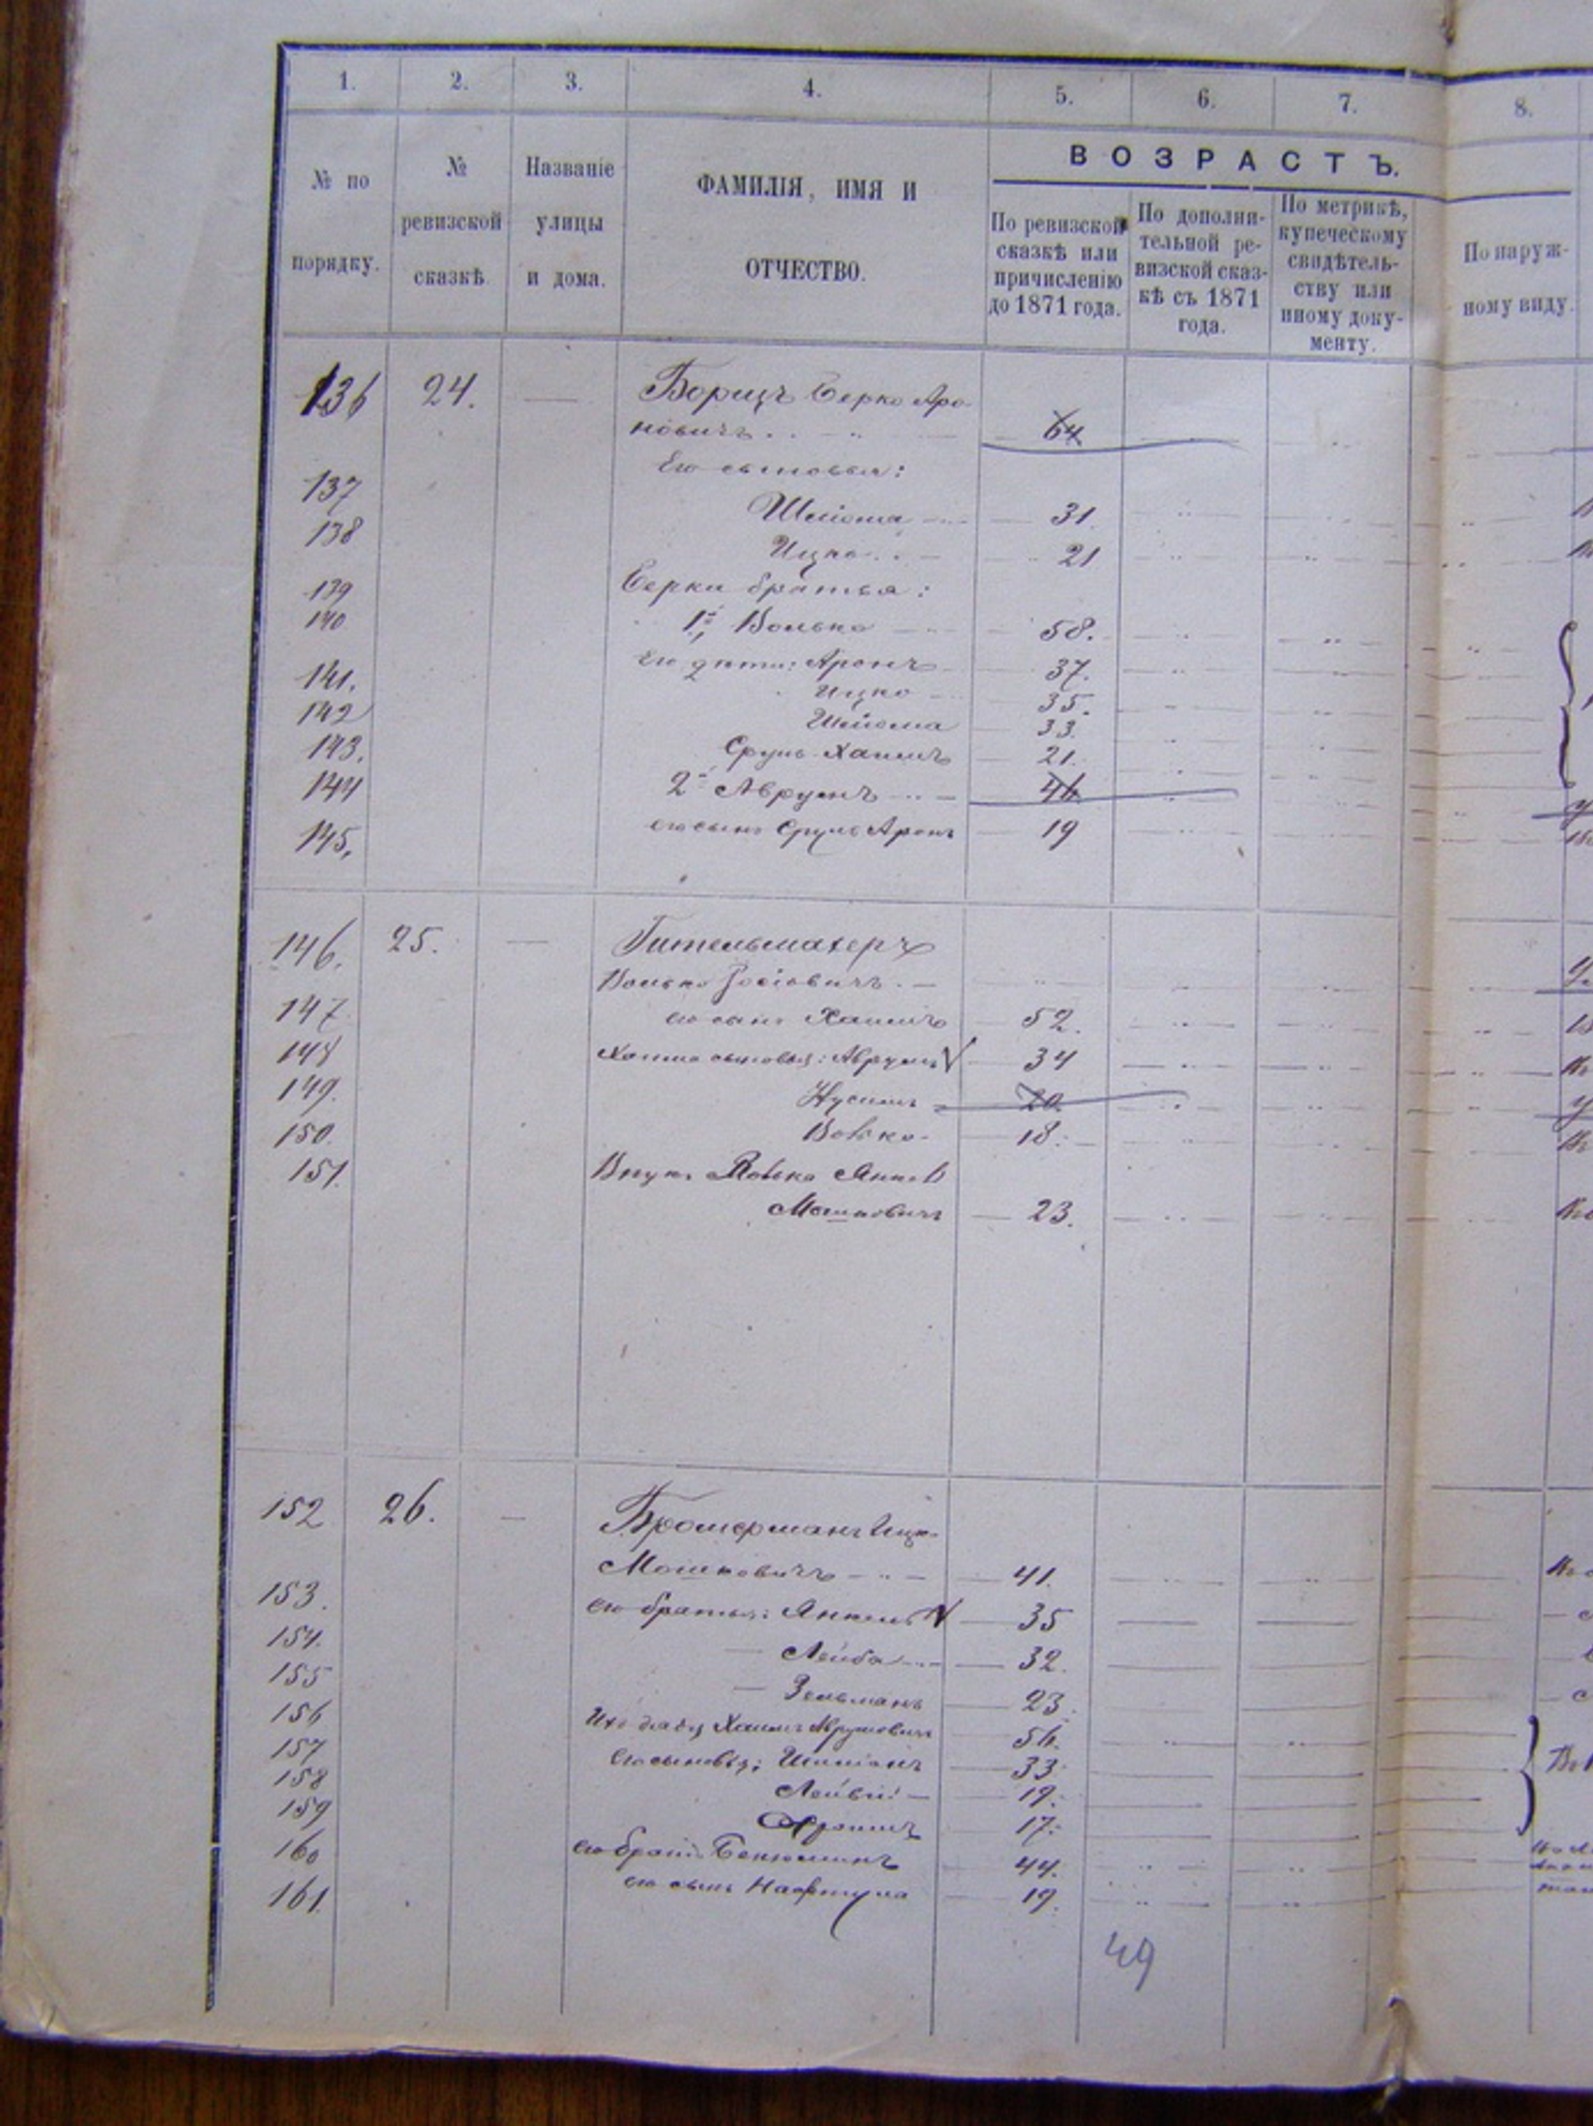 1. 2. 3. 4. 5. 6. 7. 8.
№ по порядку.
№ ревизской сказкѣ.
Названіе улицы и дома.
ФАМИЛІЯ, ИМЯ И ОТЧЕСТВО.
ВОЗРАСТЪ.
По ревизской сказкѣ или причисленію до 1871 года.
По дополни-тельной ре-визской сказ-кѣ съ 1871 года.
По метрикѣ, купеческому свидѣтель-ству или иному доку-менту.
По наруж-ному виду.
136 24. — Борщъ Берко Аро-
новичъ 64
137 Его сыновья:
138 Шліома 31.
Ицко 21
139 Берки братья:
140 1й Волько 58.
Его дѣти: Аронъ 37.
141. Ицко 35.
142 Шліома 33.
143. Сруль Хаимъ 21.
144 2й Аврумъ 46
145. его сынъ Сруль Аронъ 19
146. 25. — Гительмахеръ
Волько Іосіовичъ
147 его сынъ Хаимъ 52.
148 Хаима сыновья: Аврумъ V 34
149. Нусимъ 20
150. Волько 18.
151. Внукъ Волька Янкель
Мошковичъ 23.
152 26. — Ицко
Мошковичъ 41.
153. его братья: Янкель V 35
154. Лейба 32.
155 Зельманъ 23.
156 Ихъ дядя Хаимъ Аврумовичъ 56.
157 его сыновья: 33.
158 19.
159 Фроимъ 17.
160 его братъ Беньюминъ 44.
161. его сынъ Нафтула 19.
49